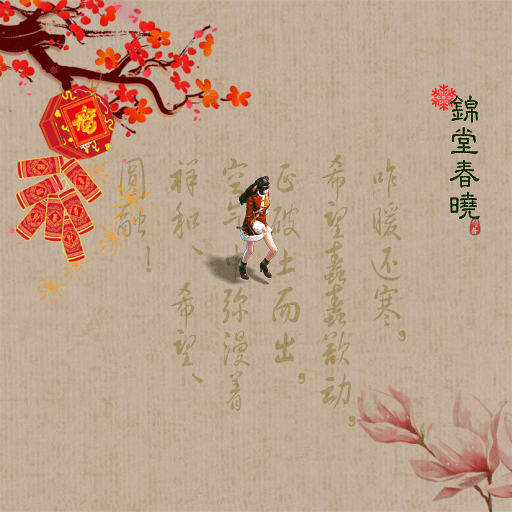 錦堂春曉
咋暖还寒，
希望蠢蠢欲动，
正破土而出，
空气中弥漫着
祥和、希望、
圆融！